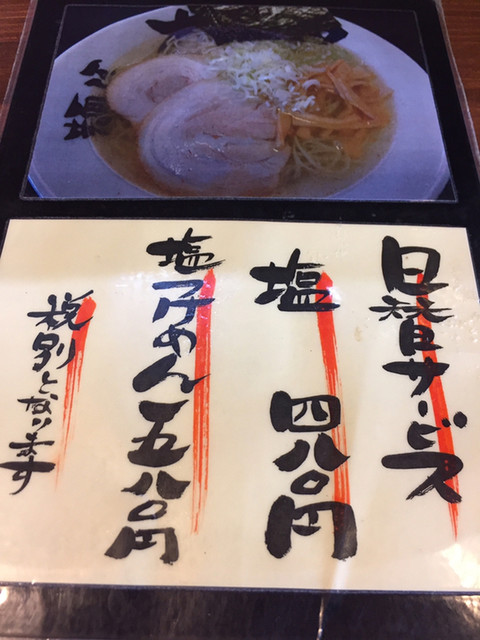 日替サービス
塩 四八〇円
塩子めん 五八〇円
税別となります